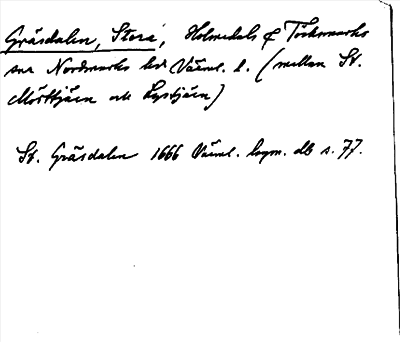 Gräsdalen, Stora, Holmedals & Töcksmarks
snr Nordmarks hd Värml. l. (mellan St.
Mörttjärn och Lystjärn)
St. Gräsdalen 1666 Värml. lagm. db s. 77.